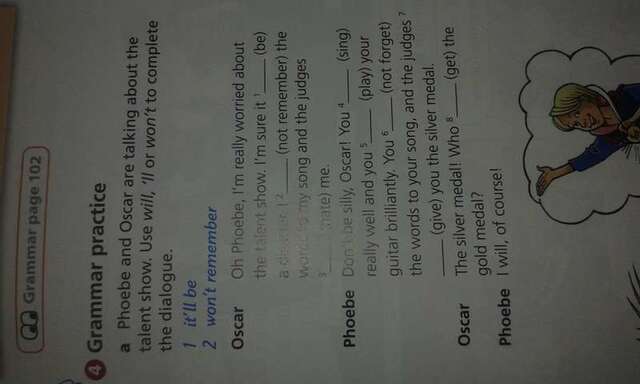 Grammar page 102
4 Grammar practice
a Phoebe and Oscar are talking about the
talent show. Use will, 'll or won't to complete
the dialogue.
1 it'll be
2 won't remember
Oscar Oh Phoebe, I'm really worried about
the talent show. I'm sure it ¹____ (be)
a I ²____ (not remember) the
words to my song and the judges
³____ (hate) me.
Phoebe Don't be silly, Oscar! You ⁴____ (sing)
really well and you ⁵____ (play) your
guitar brilliantly. You ⁶____ (not forget)
the words to your song, and the judges ⁷
____ (give) you the silver medal.
Oscar The silver medal! Who ⁸____ (get) the
gold medal?
Phoebe I will, of course!